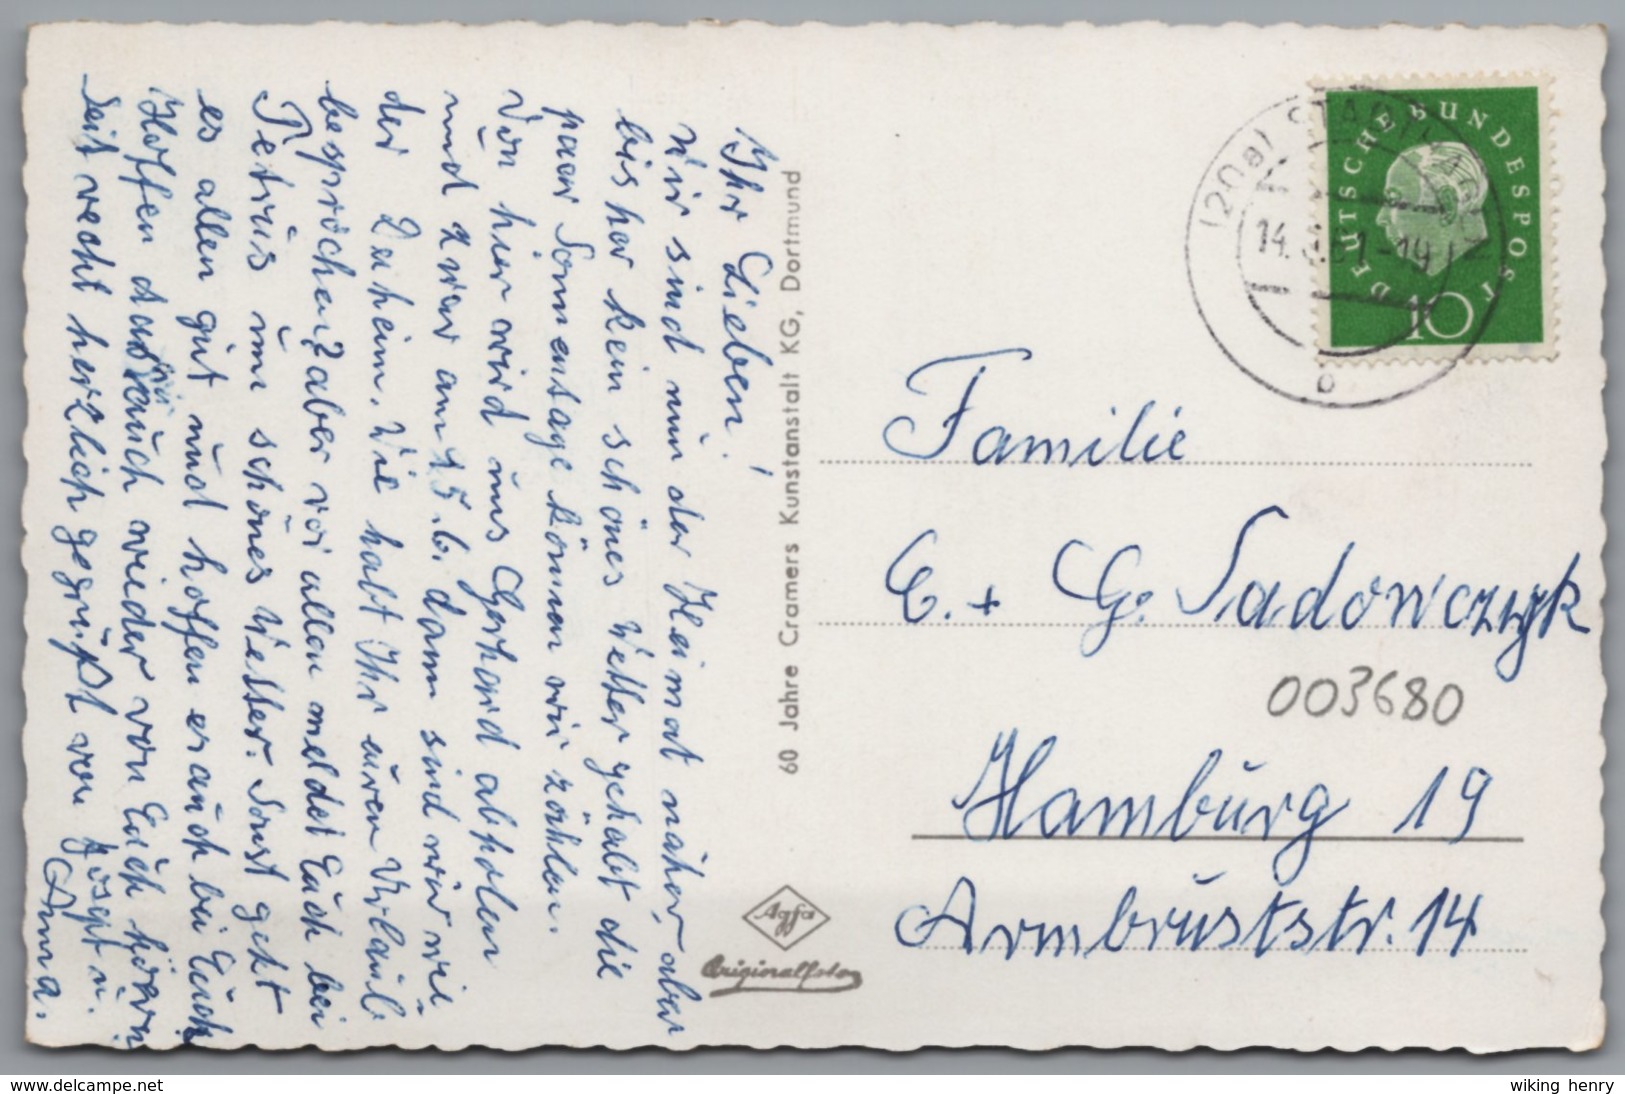 Ihr Lieben!
Wir sind nun der Heimat näher aber
bisher kein schönes Wetter gehabt die
paar Sonnentage können wir zählen.
Von hier wird uns Gerhard abholen
und zwar am 15.6. dann sind wir wie
der Daheim. Wie habt Ihr euren Urlaub
besprochen? aber vor allen meldet Euch bei
Petrus um schönes Wetter. Sonst geht
es allen gut und hoffen es auch bei Euch
Hoffen das wir auch wieder von Euch hören
Seit recht herzlich gegrüßt von Josept u.
Anna.
60 Jahre Cramers Kunstanstalt KG, Dortmund
Agfa
Originalfoto
DEUTSCHE BUNDESPOST
10
(20a) STADTHAGEN
14. .61.-19
b
Familie
E. + G. Sadowczyk
003680
Hamburg 19
Armbruststr. 14
www.delcampe.net
wiking henry